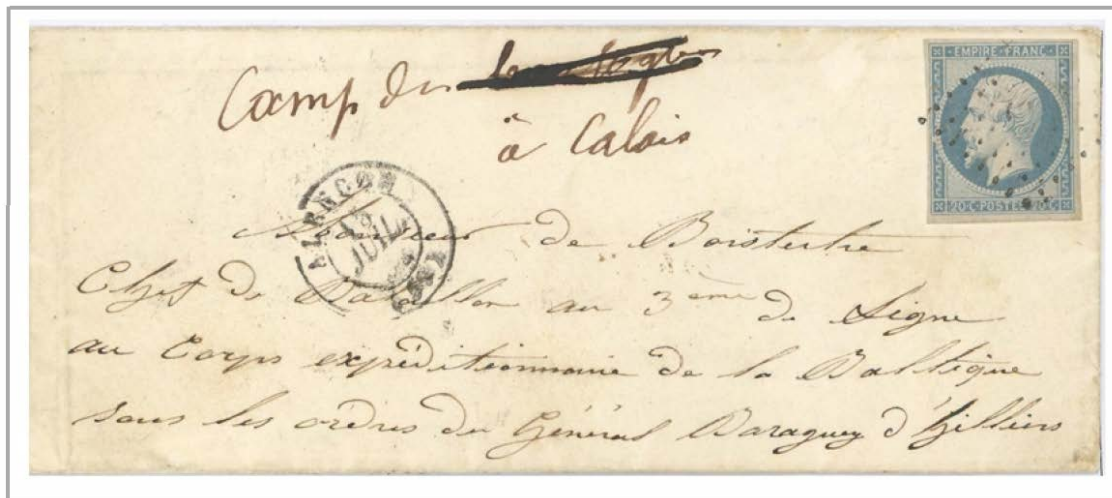 EMPIRE FRANC.
20·C·POSTES·20·C
Camp de
à Calais
ALENÇON
JUIL
Monsieur de Boistertre
Chef de Bataillon au 3ème de Ligne
au Corps expéditionnaire de la Baltique
sous les ordres du Général Baraguey d'Hilliers